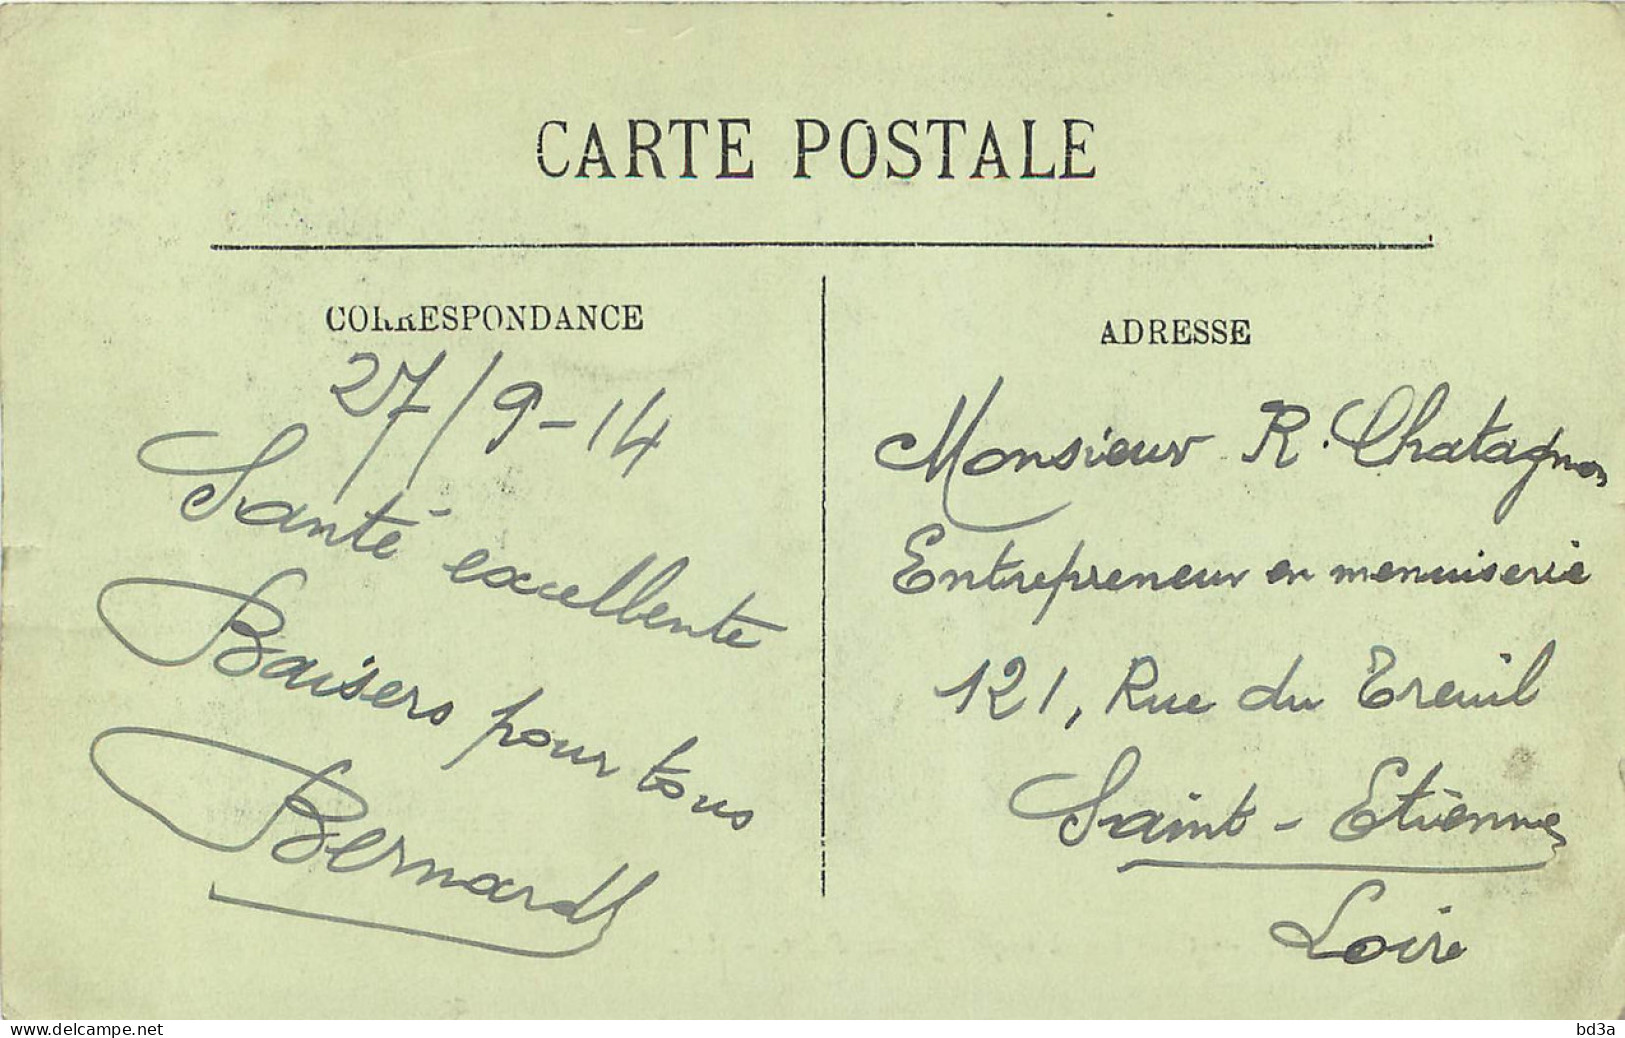 CARTE POSTALE
CORRESPONDANCE
27/9-14
Santé excellente
Baisers pour tous
Bernard
ADRESSE
Monsieur R. Chatagnon
Entrepreneur en menuiserie
121, Rue du Treuil
Saint-Etienne
Loire
www.delcampe.net
bd3a